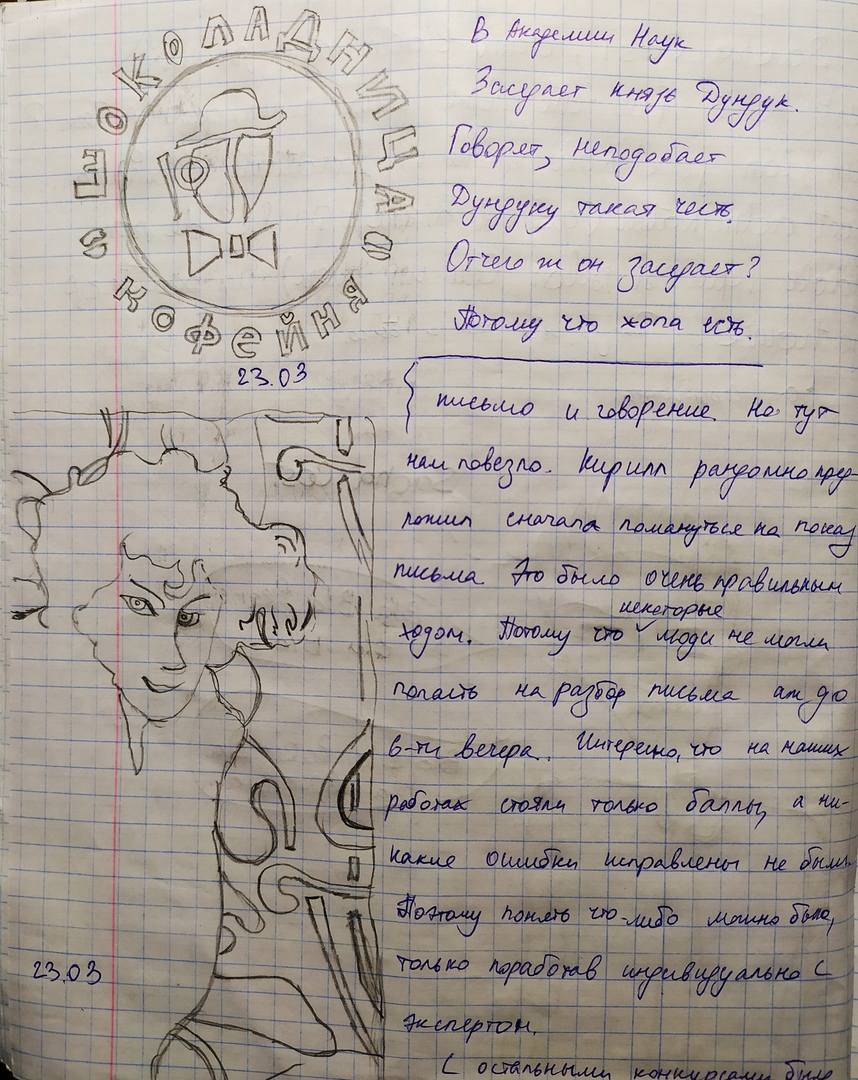 ШОКОЛАДНИЦА
КОФЕЙНЯ
23.03
В Академии Наук
Заседает князь Дундук.
Говорят, неподобает
Дундуку такая честь.
Отчего ж он заседает?
Потому что жопа есть.
письмо и говорение. Но тут
нам повезло. Кирилл рандомно пред-
ложил сначала ломануться на показ
письма. Это было очень правильным
некоторые
ходом. Потому что люди не могли
попасть на разбор письма аж до
6-ти вечера. Интересно, что на наших
работах стояли только баллы, а ни-
какие ошибки исправлены не были.
Поэтому понять что-либо можно было,
только поработав индивидуально с
экспертом.
С остальными конкурсами было
23.03